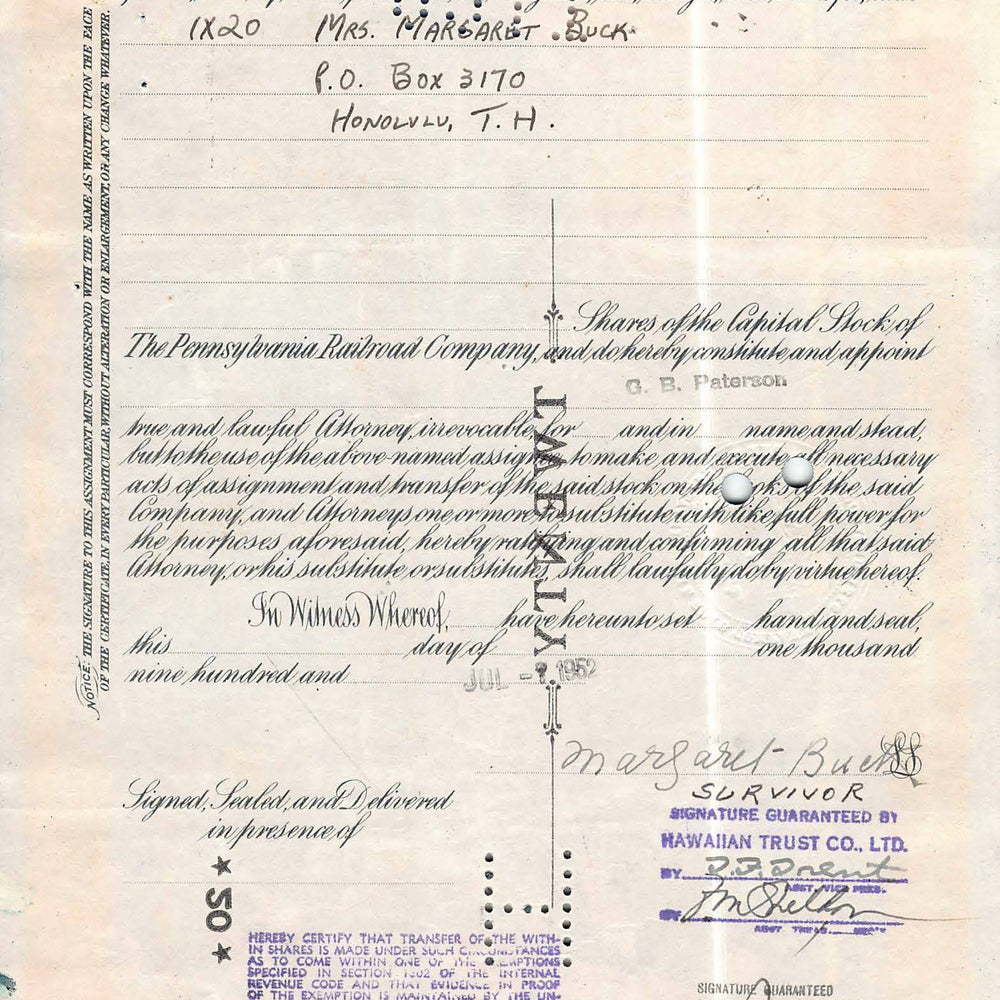 1X20 MRS. MARGARET BUCK
P.O. BOX 3170
HONOLULU, T.H.
Shares of the Capital Stock of
The Pennsylvania Railroad Company, and do hereby constitute and appoint
G. B. Paterson
true and lawful Attorney, irrevocable, for and in name and stead,
but to the use of the above-named assignee to make, and execute, all necessary
acts of assignment and transfer of the said stock on the books of the said
Company, and Attorneys, one or more, to substitute with like full power for
the purposes aforesaid, hereby ratifying and confirming all that said
Attorney, or his substitute, or substitutes, shall lawfully do by virtue hereof.
In Witness Whereof, have hereunto set hand and seal,
this day of one thousand
nine hundred and
JUL 1952
TWENTY
Margaret Buck
SURVIVOR
Signed, Sealed, and Delivered
in presence of
SIGNATURE GUARANTEED BY
HAWAIIAN TRUST CO., LTD.
BY
ASST. VICE PRES.
BY
★ 50 ★
HEREBY CERTIFY THAT TRANSFER OF THE WITH-
IN SHARES IS MADE UNDER SUCH CIRCUMSTANCES
AS TO COME WITHIN ONE OF THE EXEMPTIONS
SPECIFIED IN SECTION 1802 OF THE INTERNAL
REVENUE CODE AND THAT EVIDENCE IN PROOF
OF THE EXEMPTION IS MAINTAINED BY THE UN-
SIGNATURE GUARANTEED
NOTICE: THE SIGNATURE TO THIS ASSIGNMENT MUST CORRESPOND WITH THE NAME AS WRITTEN UPON THE FACE
OF THE CERTIFICATE, IN EVERY PARTICULAR, WITHOUT ALTERATION OR ENLARGEMENT, OR ANY CHANGE WHATEVER.